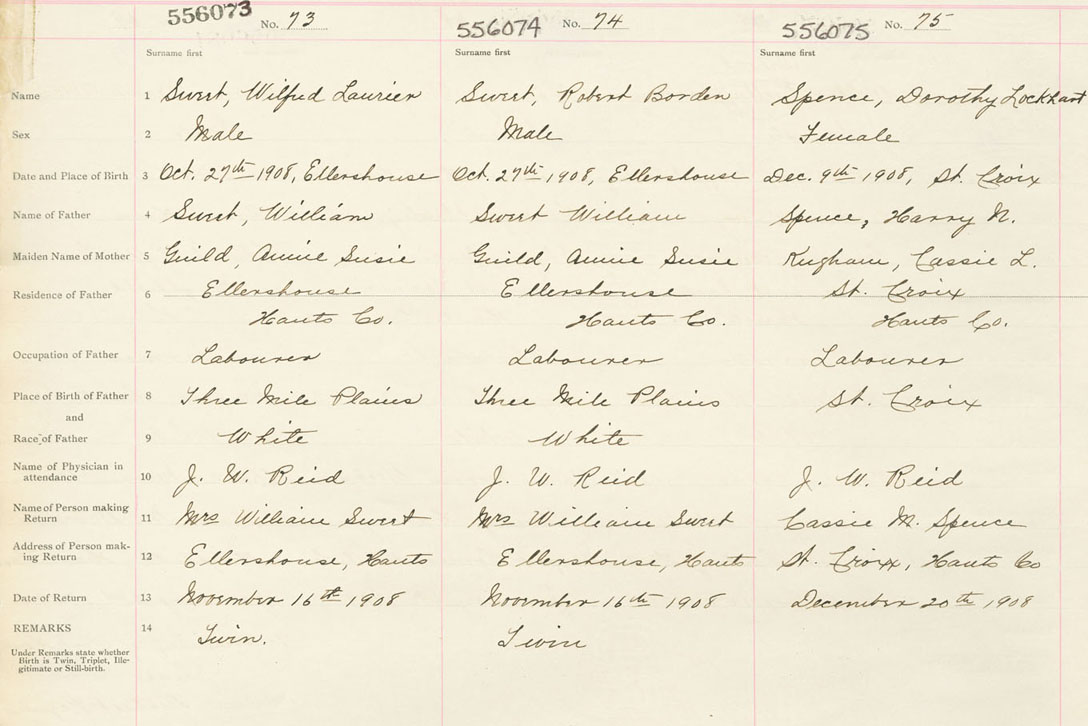 556073 No. 73 556074 No. 74 556075 No. 75
Surname first Surname first Surname first
Name 1 Swert, Wilfred Laurier Swert, Robert Borden Spence, Dorothy Lockhart
Sex 2 Male Male Female
Date and Place of Birth 3 Oct. 27th 1908, Ellershouse Oct. 27th 1908, Ellershouse Dec. 9th 1908, St. Croix
Name of Father 4 Swert, William Swert William Spence, Harry N.
Maiden Name of Mother 5 Guild, Annie Susie Guild, Annie Susie Cassie L.
Residence of Father 6 Ellershouse Ellershouse St. Croix
Hants Co. Hants Co. Hants Co.
Occupation of Father 7 Labourer Labourer Labourer
Place of Birth of Father 8 Three Mile Plains Three Mile Plains St. Croix
and
Race of Father 9 White White
Name of Physician in
attendance 10 J. W. Reid J. W. Reid J. W. Reid
Name of Person making
Return 11 Mrs William Swert Mrs William Swert Cassie M. Spence
Address of Person mak-
ing Return 12 Ellershouse, Hants Ellershouse, Hants St. Croix, Hants Co
Date of Return 13 November 16th 1908 November 16th 1908 December 20th 1908
REMARKS 14 Twin. Twin
Under Remarks state whether
Birth is Twin, Triplet, Ille-
gitimate or Still-birth.